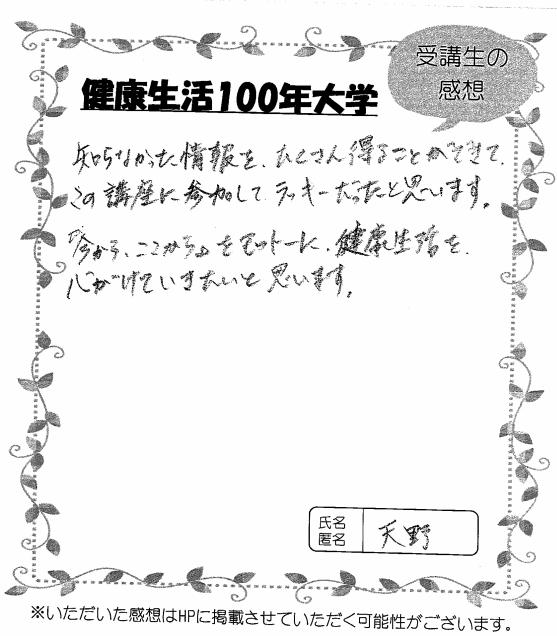 受講生の
感想
健康生活100年大学
知らなかった情報を、たくさん得ることができて、
この講座に参加して、ラッキーだったと思います。
「今から、ここから」をモットーに、健康生活を、
心がけていきたいと思います。
氏名
匿名
天野
※いただいた感想はHPに掲載させていただく可能性がございます。